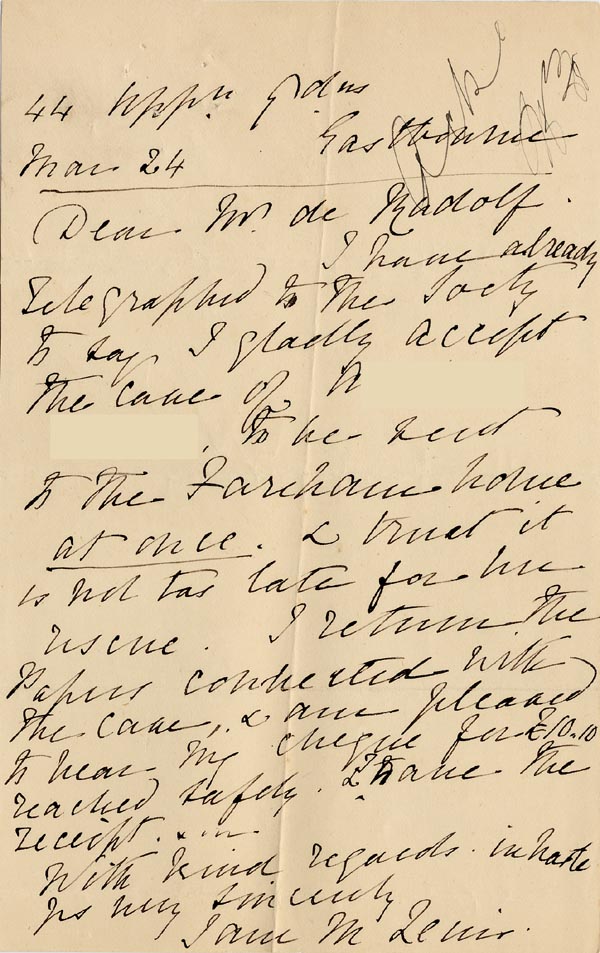 44 Upper Gdns
Eastbourne
Mar 24
Dear Mr de Rudolf.
I have already
telegraphed to the Socty
to say I gladly accept
the case of
, to be sent
to the Fareham home
at once. & trust it
is not too late for her
rescue. I return the
Papers connected with
the case, & am pleased
to hear my cheque for £10.10
reached safely. & have the
receipt.
With kind regards. in haste
Yrs very sincerely
Jane M Lewis.